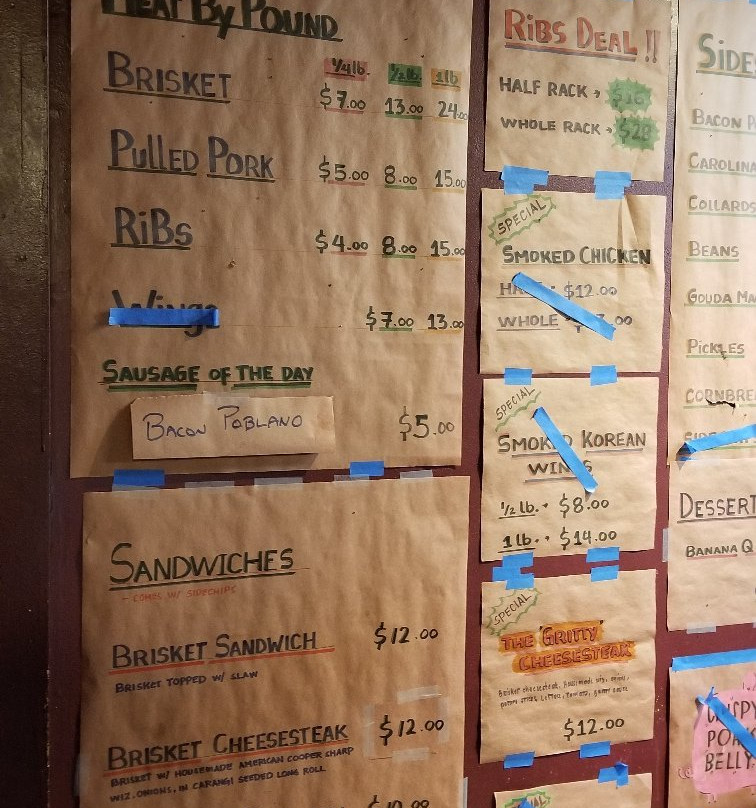 MEAT BY POUND
1/4 lb. 1/2 lb. 1 lb.
BRISKET $7.00 13.00 24.00
PULLED PORK $5.00 8.00 15.00
RIBS $4.00 8.00 15.00
Wings $7.00 13.00
SAUSAGE OF THE DAY
BACON POBLANO $5.00
SANDWICHES
- COMES W/ SIDECHIPS
BRISKET SANDWICH $12.00
BRISKET TOPPED W/ SLAW
BRISKET CHEESESTEAK $12.00
BRISKET W/ HOUSEMADE AMERICAN COOPER SHARP
WIZ, ONIONS, IN CARANGI SEEDED LONG ROLL
RIBS DEAL !!
HALF RACK
WHOLE RACK $28
SPECIAL
SMOKED CHICKEN
$12.00
WHOLE
SPECIAL
SMOKED KOREAN
WINGS
1/2 lb. $8.00
1 lb. $14.00
SPECIAL
THE "GRITTY"
CHEESESTEAK
$12.00
SPECIAL
SIDES
BACON P
CAROLINA
COLLARDS
BEANS
GOUDA MA
PICKLES
CORNBRE
DESSERT
BANANA Q
CRISPY
PORK
BELLY